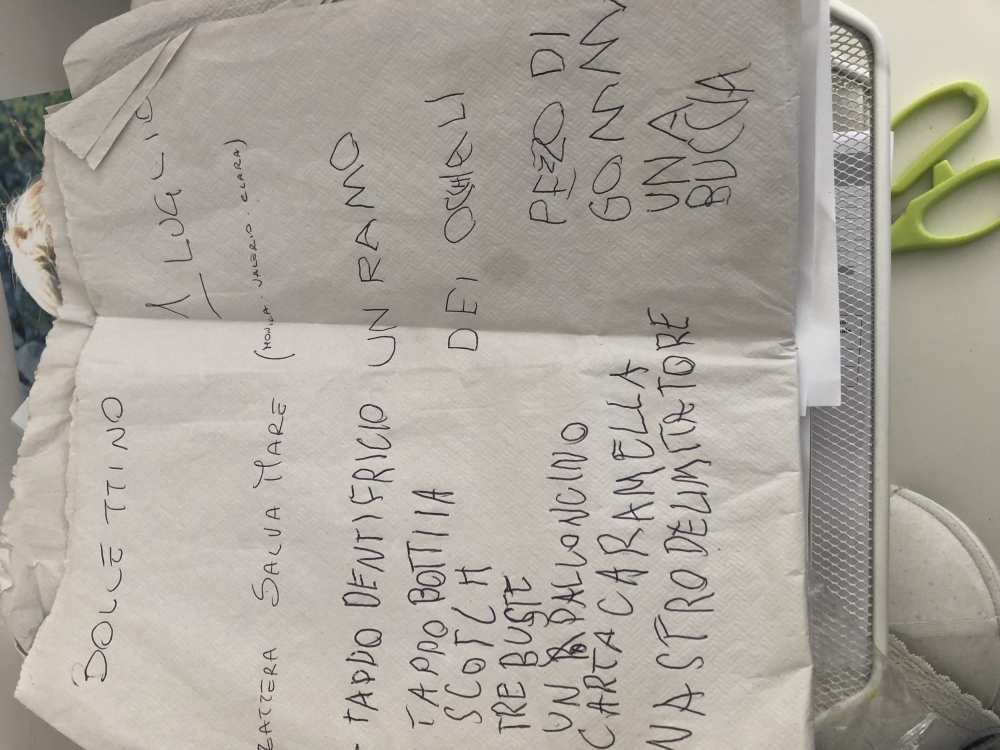 DOLCETTINO
1 LUGLIO
ZATTERA SALVA MARE (MONICA. VALERIO. CLARA)
TAPPO DENTIFRICIO
TAPPO BOTTIIA
SCOTCH
TRE BUSTE
UN PALLONCINO
CARTA CARAMELLA
NASTRO DELIMITATORE
UN RAMO
DEI OCCHIALI
PEZZO DI
GOMMM
UNA
BUCCIA